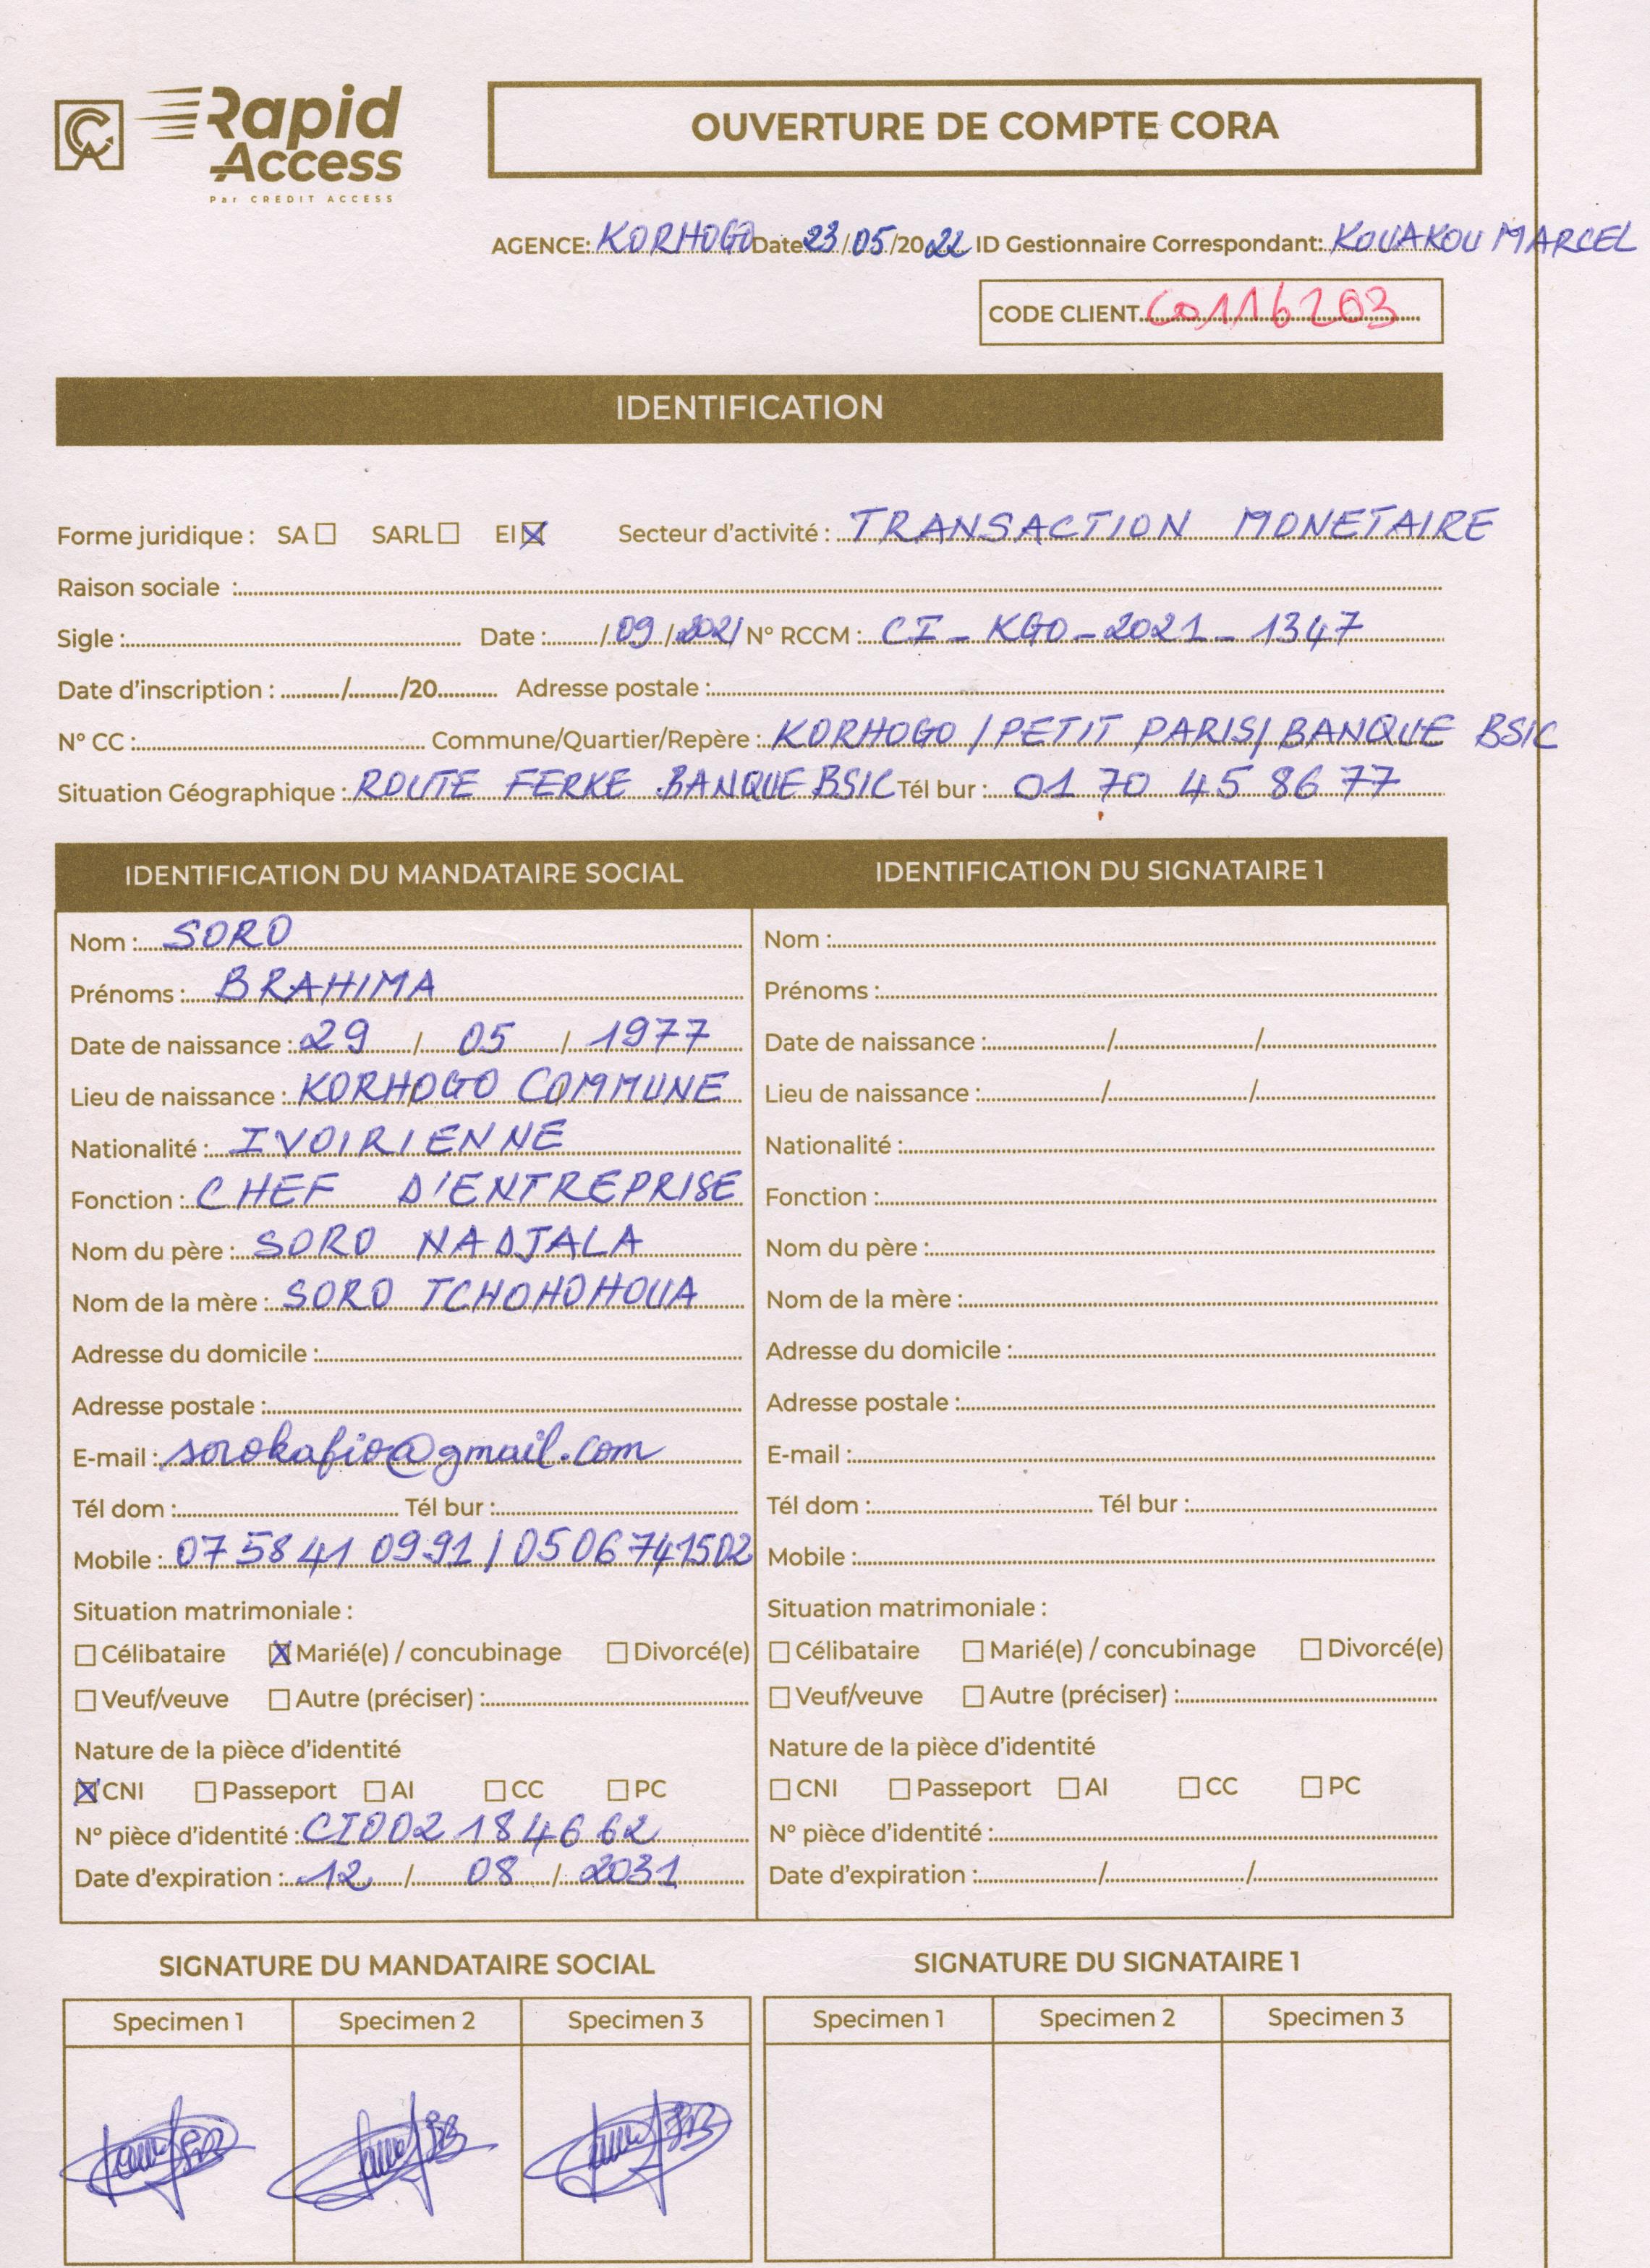 Rapid Access
Par CREDIT ACCESS
OUVERTURE DE COMPTE CORA
AGENCE: KORHOGO Date 23/05/2022 ID Gestionnaire Correspondant: KOUAKOU MARCEL
CODE CLIENT C0116203
IDENTIFICATION
Forme juridique : SA ☐ SARL ☐ EI ☒ Secteur d'activité : TRANSACTION MONETAIRE
Raison sociale :
Sigle : Date : /09/2021 N° RCCM : CI - KGO - 2021 - 1347
Date d'inscription : / /20 Adresse postale :
N° CC : Commune/Quartier/Repère : KORHOGO / PETIT PARIS / BANQUE BSIC
Situation Géographique : ROUTE FERKE BANQUE BSIC Tél bur : 01 70 45 86 77
IDENTIFICATION DU MANDATAIRE SOCIAL
Nom : SORO
Prénoms : BRAHIMA
Date de naissance : 29 / 05 / 1977
Lieu de naissance : KORHOGO COMMUNE
Nationalité : IVOIRIENNE
Fonction : CHEF D'ENTREPRISE
Nom du père : SORO NADJALA
Nom de la mère : SORO TCHOHOHOUA
Adresse du domicile :
Adresse postale :
E-mail : sorokafio@gmail.com
Tél dom : Tél bur :
Mobile : 07 58 41 09 91 / 05 06 74 15 02
Situation matrimoniale :
☐ Célibataire ☒ Marié(e) / concubinage ☐ Divorcé(e)
☐ Veuf/veuve ☐ Autre (préciser) :
Nature de la pièce d'identité
☒ CNI ☐ Passeport ☐ AI ☐ CC ☐ PC
N° pièce d'identité : CI002184662
Date d'expiration : 12 / 08 / 2031
IDENTIFICATION DU SIGNATAIRE 1
Nom :
Prénoms :
Date de naissance : / /
Lieu de naissance : / /
Nationalité :
Fonction :
Nom du père :
Nom de la mère :
Adresse du domicile :
Adresse postale :
E-mail :
Tél dom : Tél bur :
Mobile :
Situation matrimoniale :
☐ Célibataire ☐ Marié(e) / concubinage ☐ Divorcé(e)
☐ Veuf/veuve ☐ Autre (préciser) :
Nature de la pièce d'identité
☐ CNI ☐ Passeport ☐ AI ☐ CC ☐ PC
N° pièce d'identité :
Date d'expiration : / /
SIGNATURE DU MANDATAIRE SOCIAL
Specimen 1 Specimen 2 Specimen 3
SIGNATURE DU SIGNATAIRE 1
Specimen 1 Specimen 2 Specimen 3